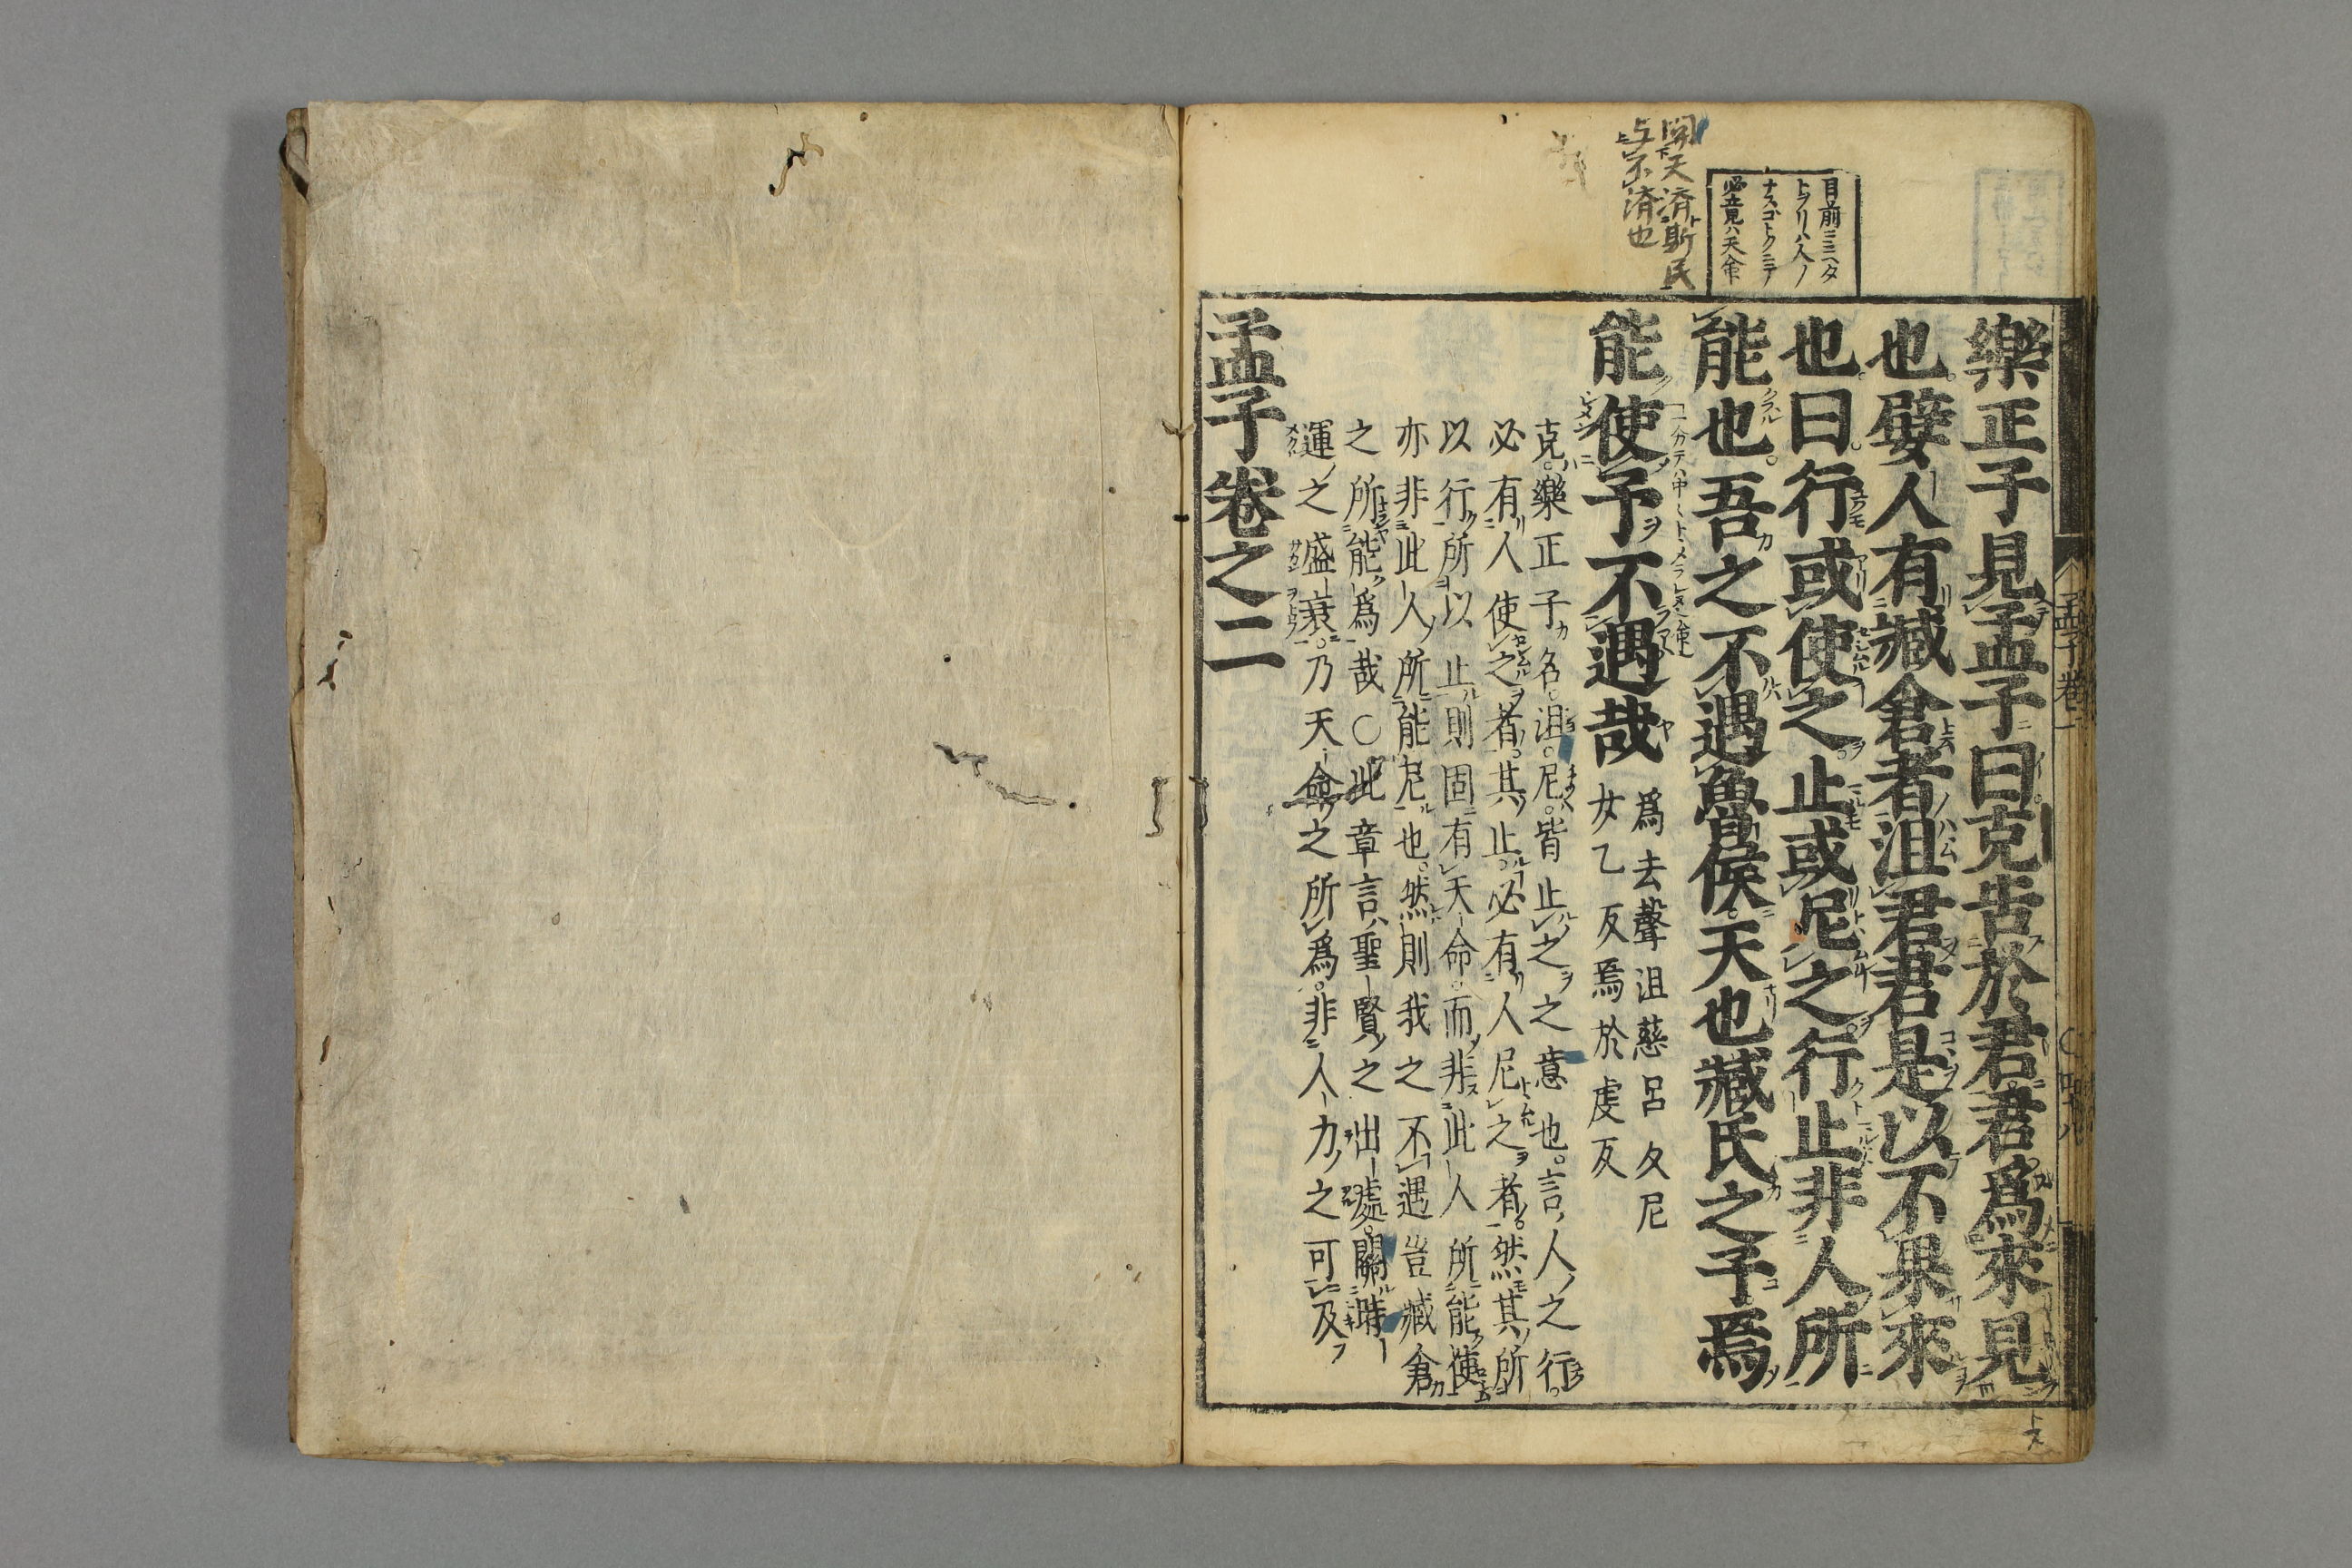 目前ニミヘタ
トヲリハ人ノ
ナスゴトクニテ
必竟ハ天命
関天済斯民
与不済也
樂正子見孟子曰克告於君君爲來見
也嬖人有臧倉者沮君君是以不果來
也曰行或使之止或尼之行止非人所
能也吾之不遇魯侯天也臧氏之子焉
能使予不遇哉
爲去聲沮慈呂反尼
女乙反焉於虔反
克樂正子名沮尼皆止之之意也言人之行
必有人使之者其止必有人尼之者然其所
以行所以止則固有天命而非此人所能使
亦非此人所能尼也然則我之不遇豈臧倉
之所能爲哉○此章言聖賢之出處關時
運之盛衰乃天命之所爲非人力之可及
孟子卷之二
孟子卷二